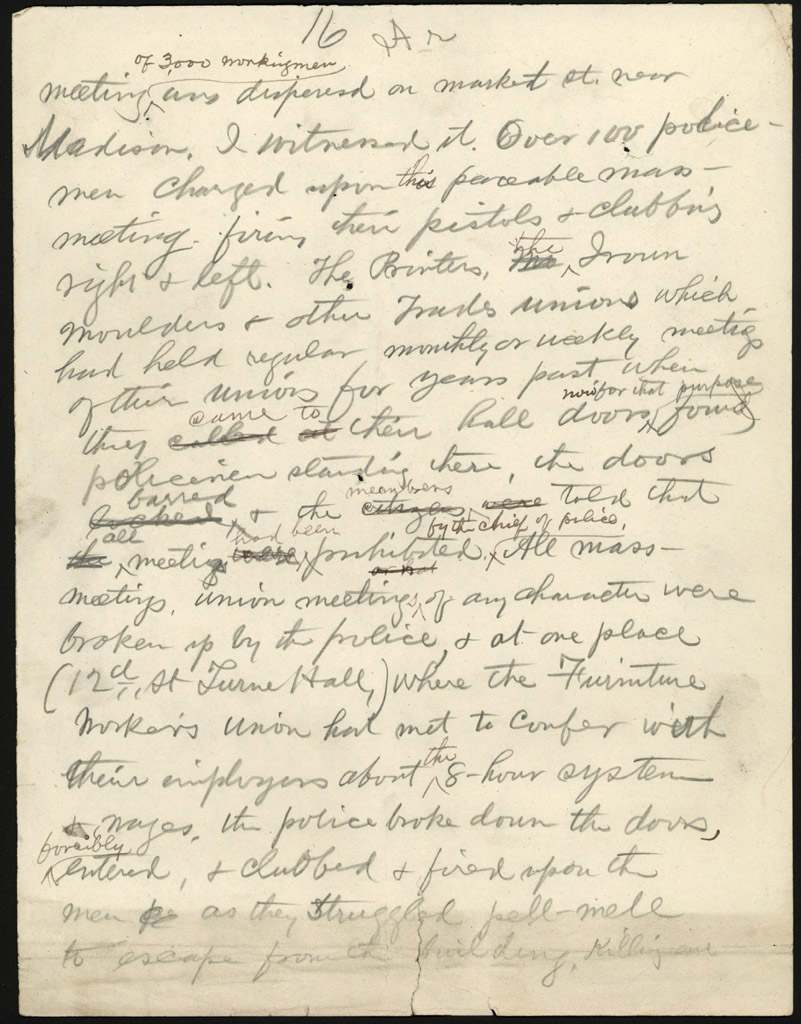 16 A r
of 3,000 workingmen
meeting was dispersed on market st. near
Madison. I witnessed it. Over 100 police-
men charged upon this peaceable mass-
meeting. firing their pistols & clubbing
right & left. The Printers, the Iron
moulders & other Trades unions which
had held regular monthly or weekly meetigs
of their unions for years past when
now for that purpose
came to
they called at their hall doors, found
policemen standing there, the doors
barred members
locked, & the citizens were told that
all had been by the chief of police.
the meetigs were prohibited. All mass-
or hat
meetings, union meetings, of any character were
broken up by the police, & at one place
(12th St Turne Hall,) where the Furniture
Worker's Union had met to confer with
the
their employers about 8-hour system
& wages, the police broke down the doors,
forcibly
entered, & clubbed & fired upon the
men as they struggled pell-mell
to escape from the building, killing one